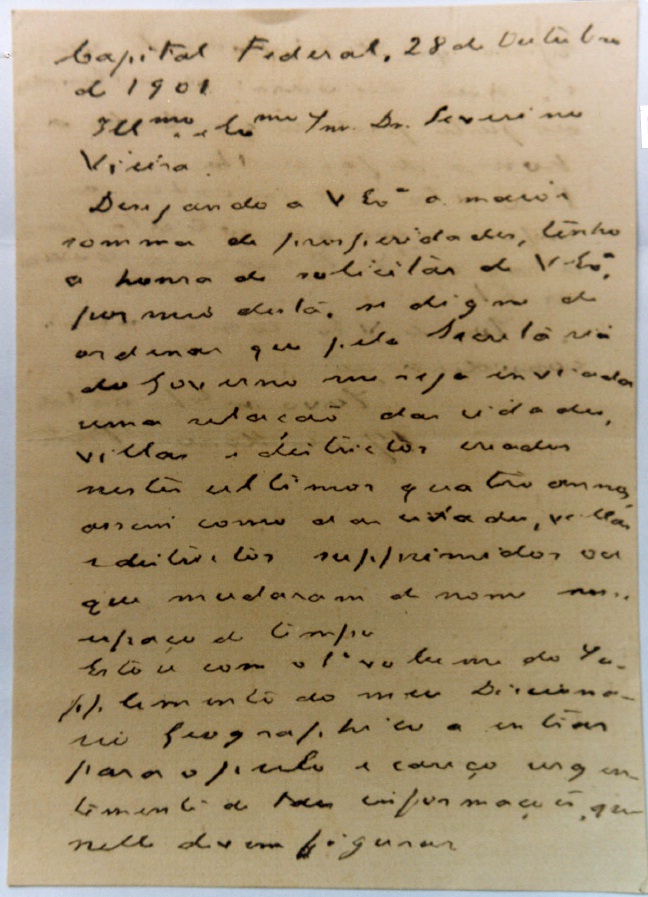 Capital Federal, 28 de Outubro
de 1901
Illmo. e Exmo Snr. Dr. Severino
Vieira.
Desejando a V Exa a maior
somma de prosperidades, tenho
a honra de solicitar de V Exa,
por meio desta, se digne de
ordenar que pela Secretaria
do Governo me seja inviada
uma relação das cidades,
villas e districtos creados
nestes ultimos quatro annos,
assim como das cidades, villas
e districtos supprimidos ou
que mudaram de nome
espaço de tempo
Estou com o 1º volume do Su-
pplemento do meu Dicciona-
rio Geographico a entrar
para o prelo e careço urgen
temente de taes informações, que
nelle devem figurar